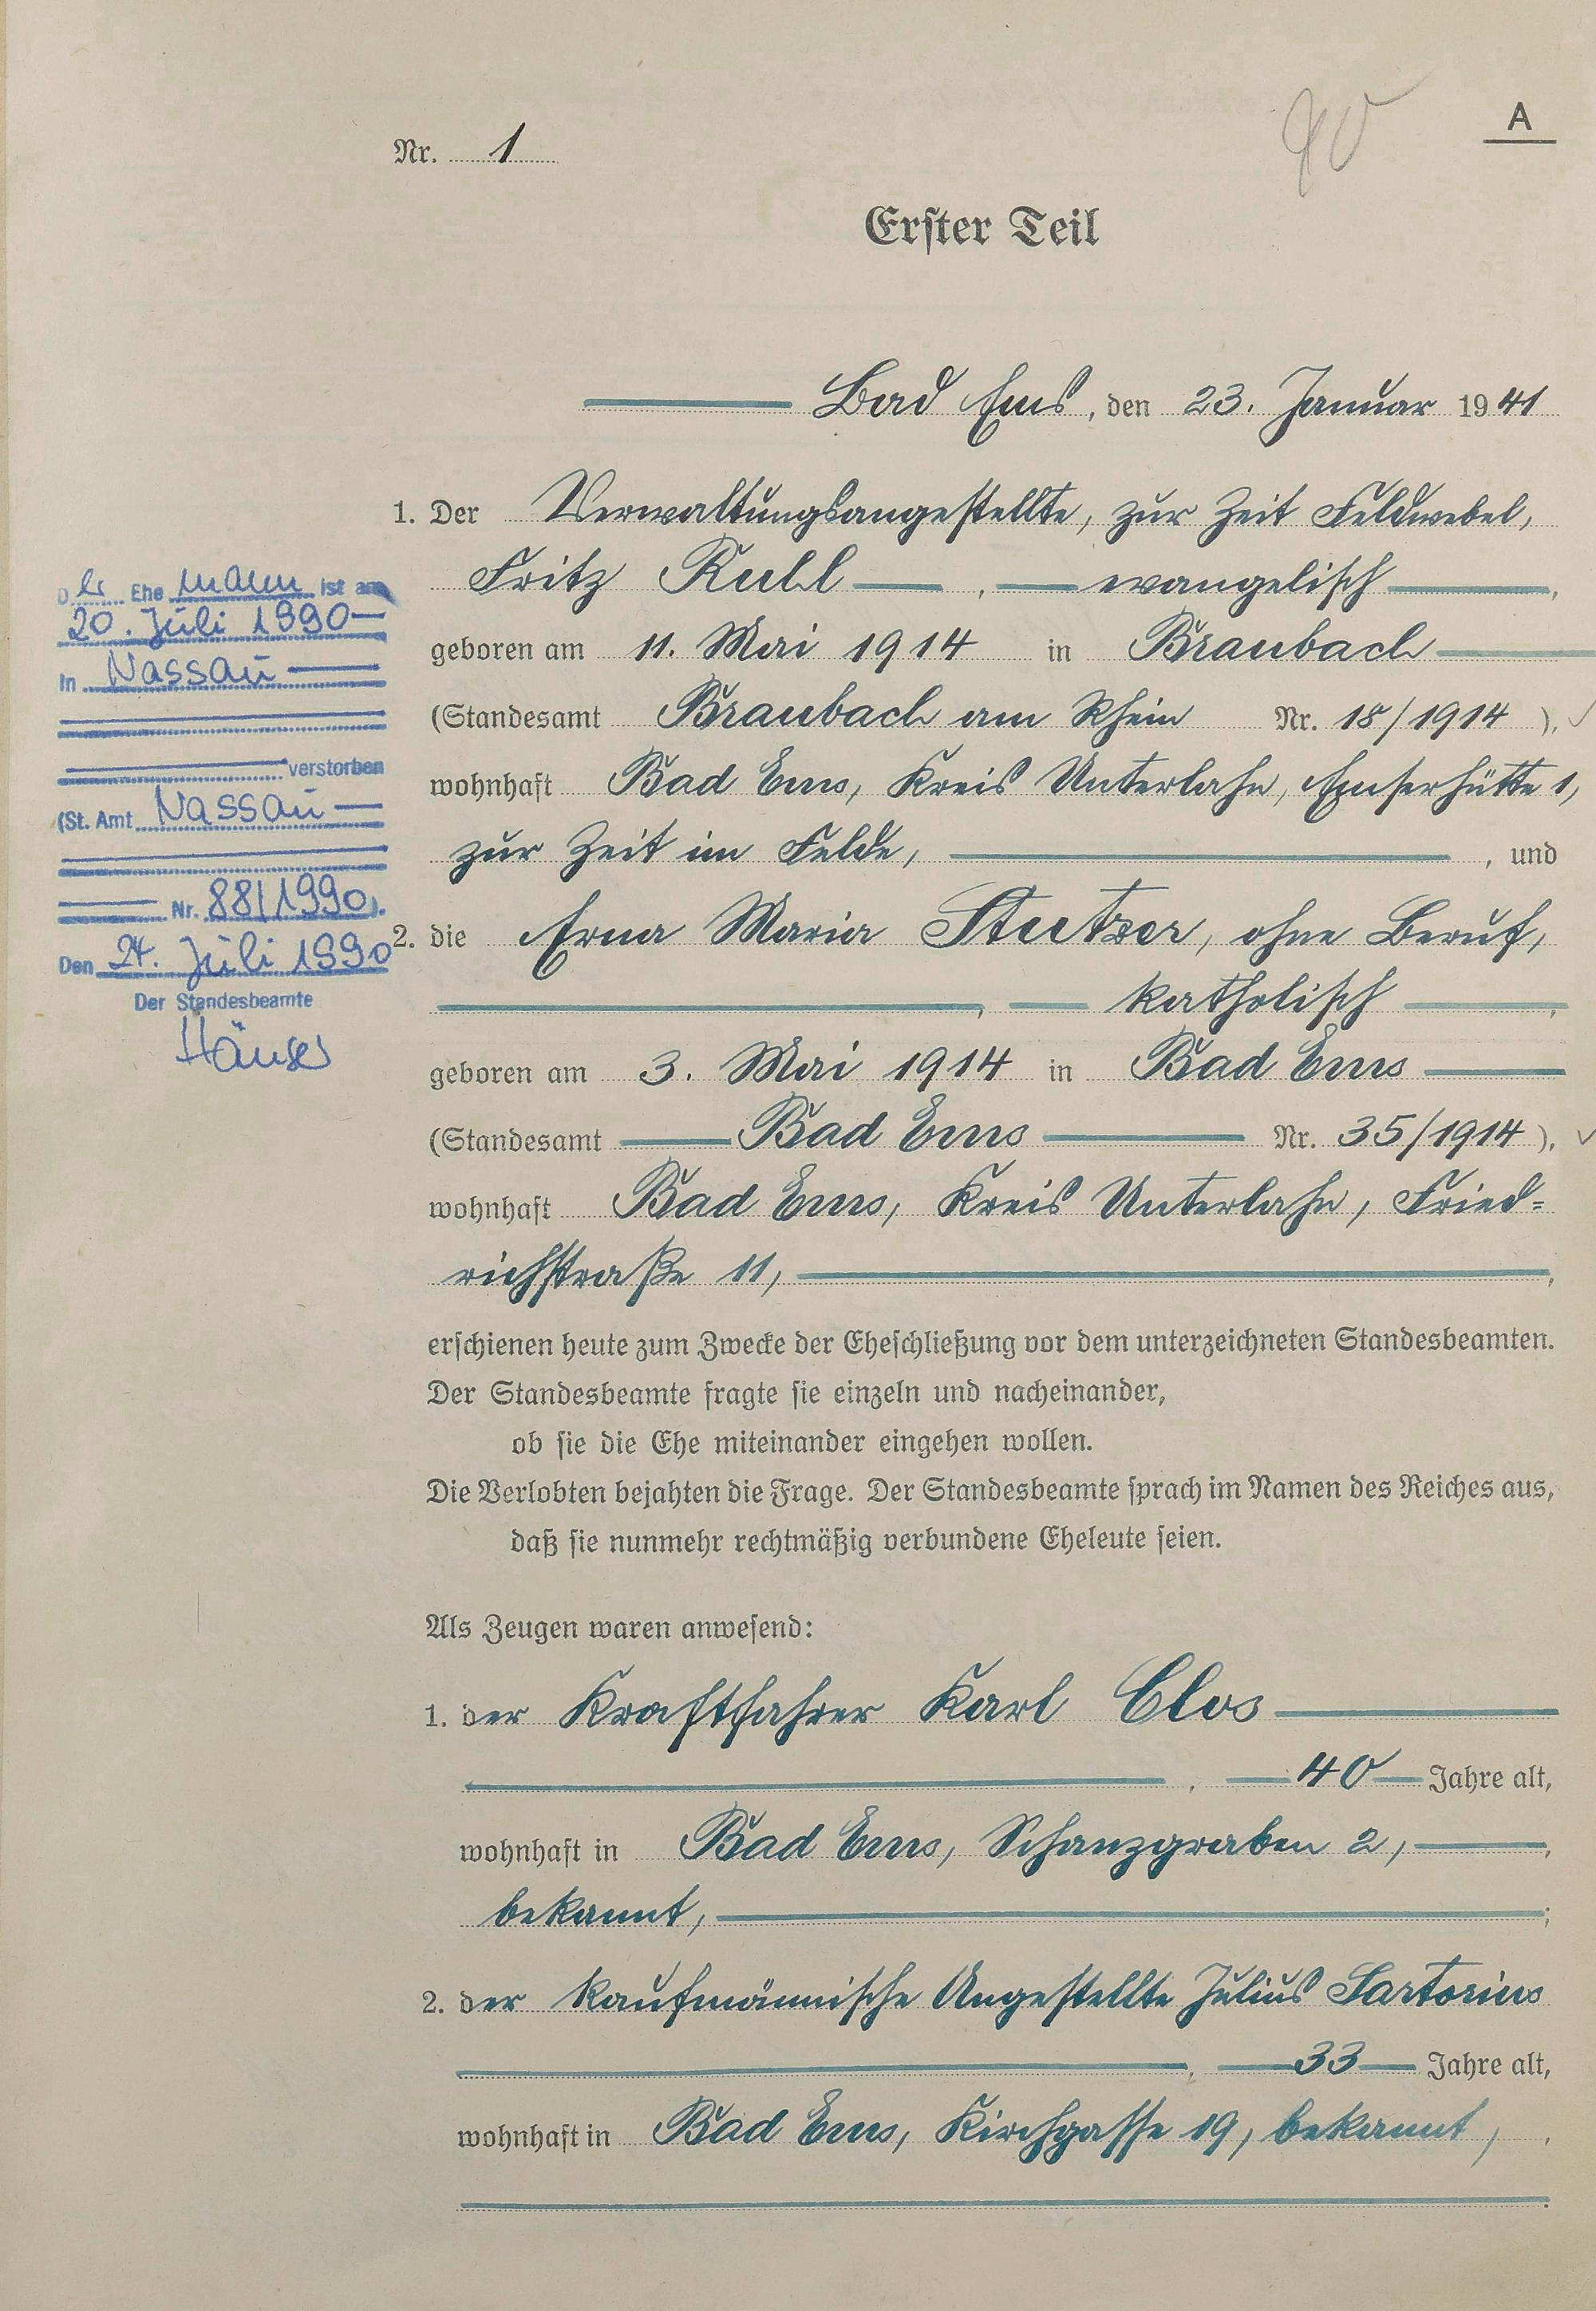 A
Nr. 1
Erster Teil
Bad Ems, den 23. Januar 1941
1. Der Verwaltungsangestellte, zur Zeit Feldwebel,
Fritz Kuhl, evangelisch,
geboren am 11. Mai 1914 in Braubach
(Standesamt Braubach am Rhein Nr. 18/1914),
wohnhaft Bad Ems, Kreis Unterlahn, Emserhütte 1,
zur Zeit im Felde, , und
2. die Erna Maria Stutzer, ohne Beruf,
, katholisch,
geboren am 3. Mai 1914 in Bad Ems
(Standesamt Bad Ems Nr. 35/1914),
wohnhaft Bad Ems, Kreis Unterlahn, Fried=
richstraße 11, ,
erschienen heute zum Zwecke der Eheschließung vor dem unterzeichneten Standesbeamten.
Der Standesbeamte fragte sie einzeln und nacheinander,
ob sie die Ehe miteinander eingehen wollen.
Die Verlobten bejahten die Frage. Der Standesbeamte sprach im Namen des Reiches aus,
daß sie nunmehr rechtmäßig verbundene Eheleute seien.
Als Zeugen waren anwesend:
1. der Kraftfahrer Karl Clos
, 40 Jahre alt,
wohnhaft in Bad Ems, Schanzgraben 2, ,
bekannt, ;
2. der kaufmännische Angestellte Julius Sartorius
, 33 Jahre alt,
wohnhaft in Bad Ems, Kirchgasse 19, bekannt, ,
.
Der Ehemann ist am
20. Juli 1990
in Nassau
verstorben
(St. Amt Nassau
Nr. 88/1990).
Den 24. Juli 1990
Der Standesbeamte